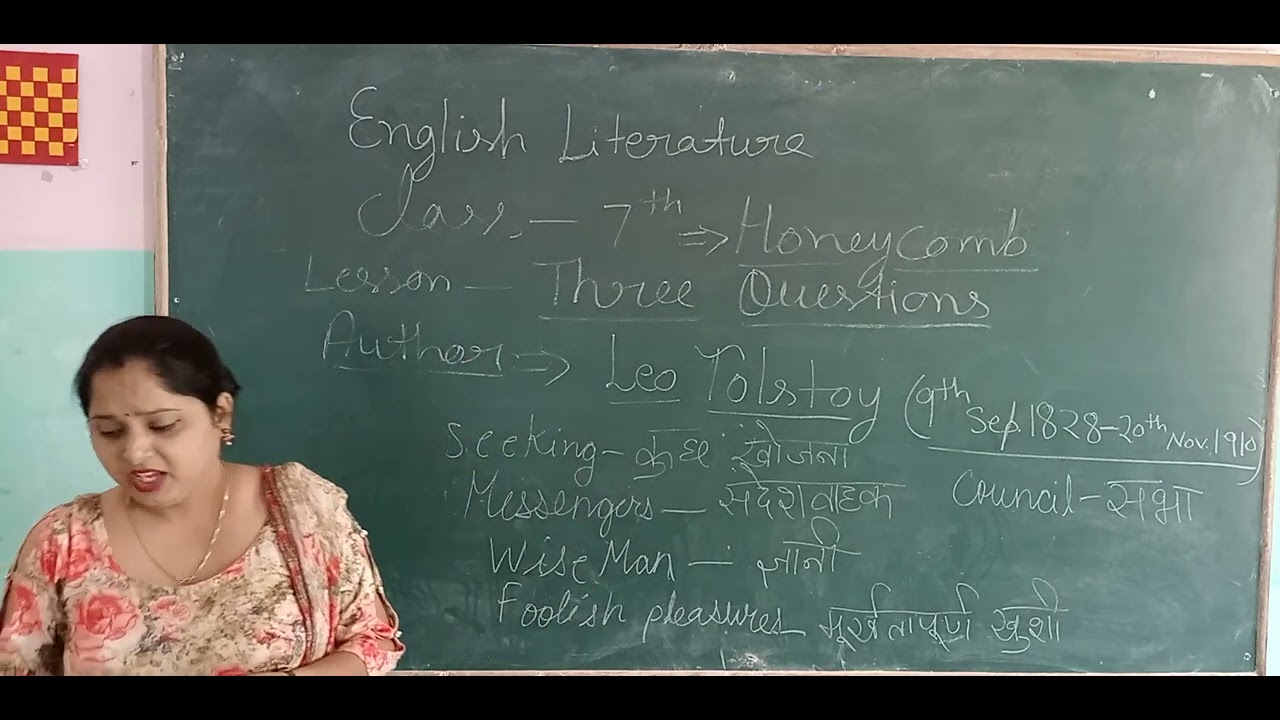 English Literature
Class, - 7th ⇒ Honeycomb
Lesson - Three Questions
Author ⇒ Leo Tolstoy (9th Sep. 1828-20th Nov. 1910)
Seeking - कुछ खोजना
Messengers - संदेशवाहक Council - सभा
Wise Man - ज्ञानी
Foolish pleasures - मूर्खतापूर्ण खुशी